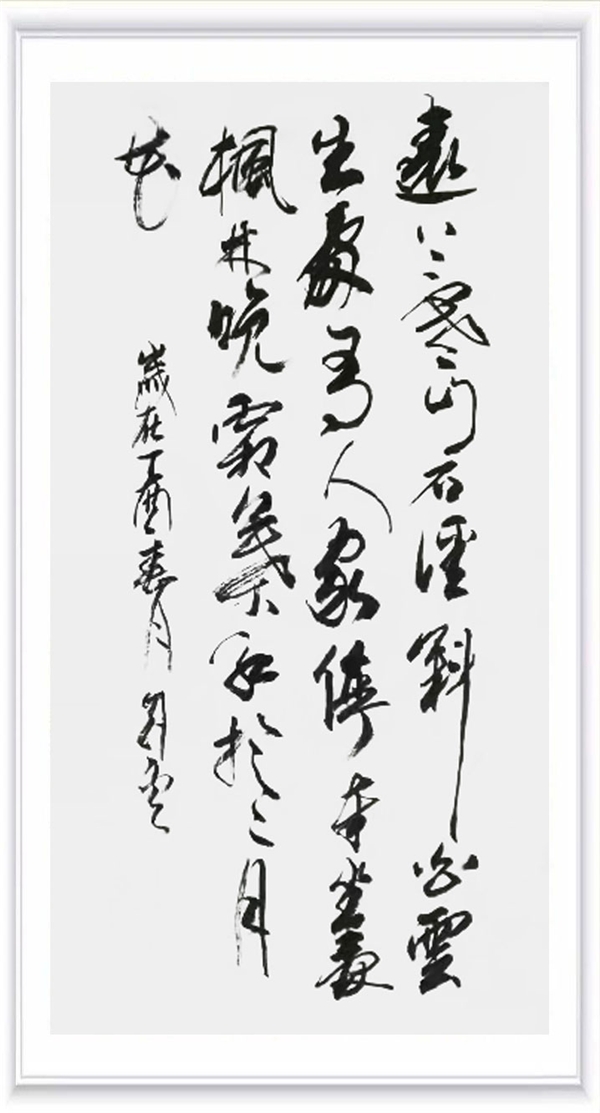 遠上寒山石徑斜白雲
生處有人家停車坐愛
楓林晚霜葉紅於二月
花
歲在丁酉春月